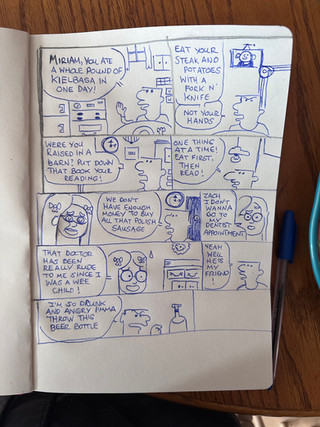 MIRIAM, YOU ATE
A WHOLE POUND OF
KIELBAGA IN
ONE DAY!
EAT YOUR
STEAK AND
POTATOES
WITH A
FORK N'
KNIFE
NOT YOUR
HANDS
WERE YOU
RAISED IN A
BARN? PUT DOWN
THAT BOOK YOUR
READING!
ONE THING
AT A TIME!
EAT FIRST,
THEN READ!
DAD
WE DON'T
HAVE ENOUGH
MONEY TO BUY
ALL THAT POLISH
SAUSAGE
ZACH
I DON'T
WANNA
GO TO
MY
DENTIST
APPOINTMENT
THAT DOCTOR
HAS BEEN
REALLY RUDE
TO ME SINCE I
WAS A WEE
CHILD!
YEAH
WELL
HE'S
MY
FRIEND!
I'M SO DRUNK
AND ANGRY IMMA
THROW THIS
BEER BOTTLE